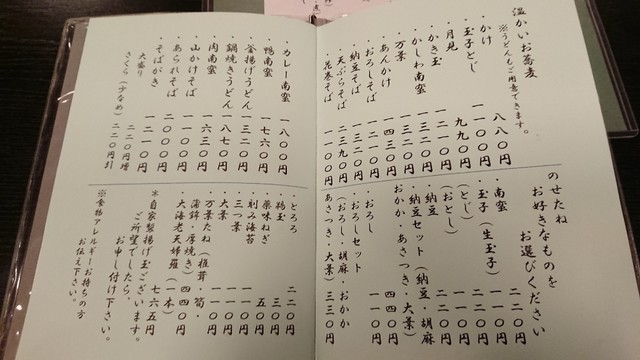 温かいお蕎麦
※うどんもご用意できます。
・かけ 八八〇円
・玉子とじ 一一〇〇円
・月見 九九〇円
・かき玉 一二一〇円
・かしわ南蛮 一三二〇円
・万景
・あんかけ 一四三〇円
・おろしそば
・納豆そば 一三二〇円
・天ぷらそば 二三九〇円
・花巻そば 一一〇〇円
のせたね
お好きなものを
お選びください
・南蛮 二二〇円
・玉子(生玉子) 一一〇円
(とじ) 二二〇円
(おとし) 二二〇円
・納豆 二二〇円
・納豆セット(納豆・胡麻
おかか・あさつき・大葉) 四四〇円
・おろし 一一〇円
・おろしセット
(おろし・胡麻・おかか
あさつき・大葉) 三三〇円
・カレー南蛮 一八〇〇円
・鴨南蛮 一七六〇円
・釜揚げうどん 一三二〇円
・鍋焼きうどん 一八七〇円
・肉南蛮 一六三〇円
・山かけそば 一一〇〇円
・あられそば 二〇〇〇円
・そばがき 一二一〇円
大盛り 二二〇円増
さくら(少なめ) 二二〇円引
・とろろ 二二〇円
・揚玉 三〇円
・薬味ねぎ 五〇円
・刻み海苔 一一〇円
・三つ葉 一一〇円
・大葉 一一〇円
・万景たね(椎茸・筍・
蒲鉾・厚焼き) 四四〇円
・大海老天婦羅(一本)
七六五円
＊自家製揚げ玉ございます。
ご所望でしたら、
お申し付け下さい。
※食物アレルギーお持ちの方
お伝え下さい。